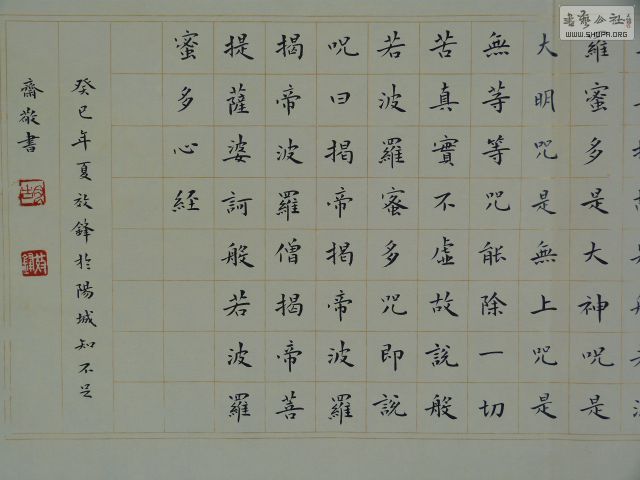 羅蜜多是大神咒是
大明咒是無上咒是
無等等咒能除一切
苦真實不虛故說般
若波羅蜜多咒即說
咒曰揭帝揭帝波羅
揭帝波羅僧揭帝菩
提薩婆訶般若波羅
蜜多心経
癸巳年夏放鋒於陽城知不足
齋敬書
書藝公社
WWW.SHUFA.ORG